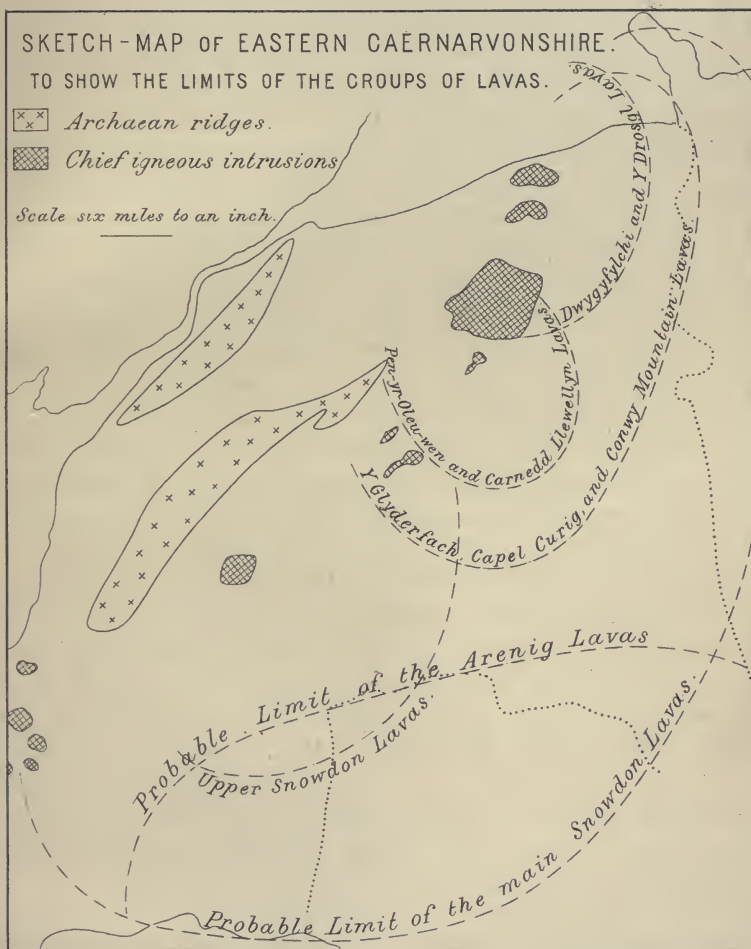 SKETCH-MAP OF EASTERN CAERNARVONSHIRE.
TO SHOW THE LIMITS OF THE GROUPS OF LAVAS.
Archaean ridges.
Chief igneous intrusions
Scale six miles to an inch.
Dwygyfylchi and Y Drosgl Lavas.
Pen-yr-Oleu-wen and Carnedd Llewellyn Lavas.
Y Glyderfach, Capel Curig, and Conwy Mountain Lavas.
Probable Limit of the Arenig Lavas
Upper Snowdon Lavas.
Probable Limit of the main Snowdon Lavas.